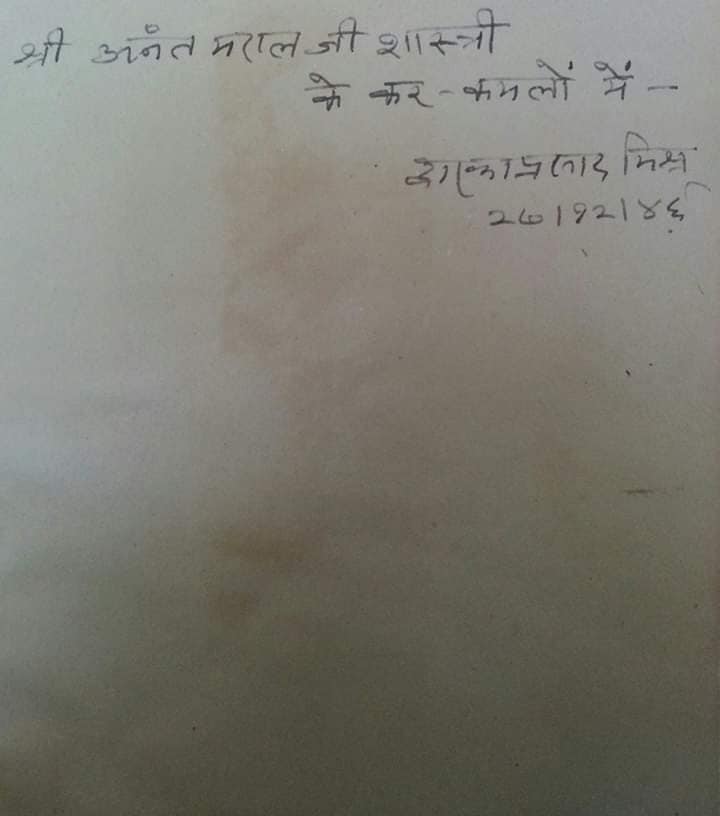 श्री अनंत मराल जी शास्त्री
के कर-कमलों में —
द्वारकाप्रसाद मिश्र
२७।१२।४६